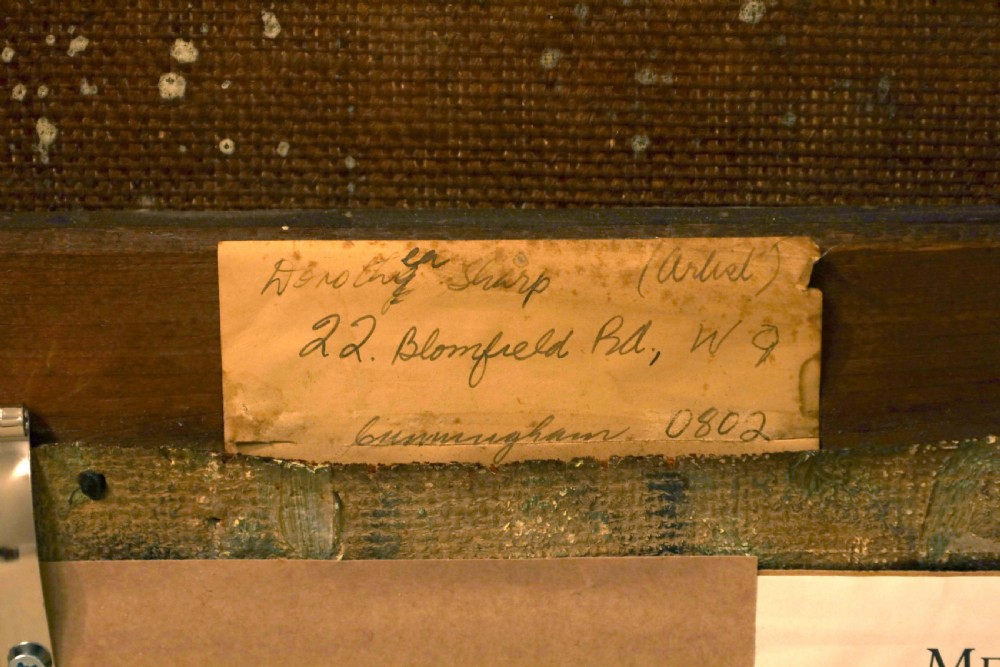 Dorothea Sharp (Artist)
22. Blomfield Rd., W 9
Cunningham 0802
ME